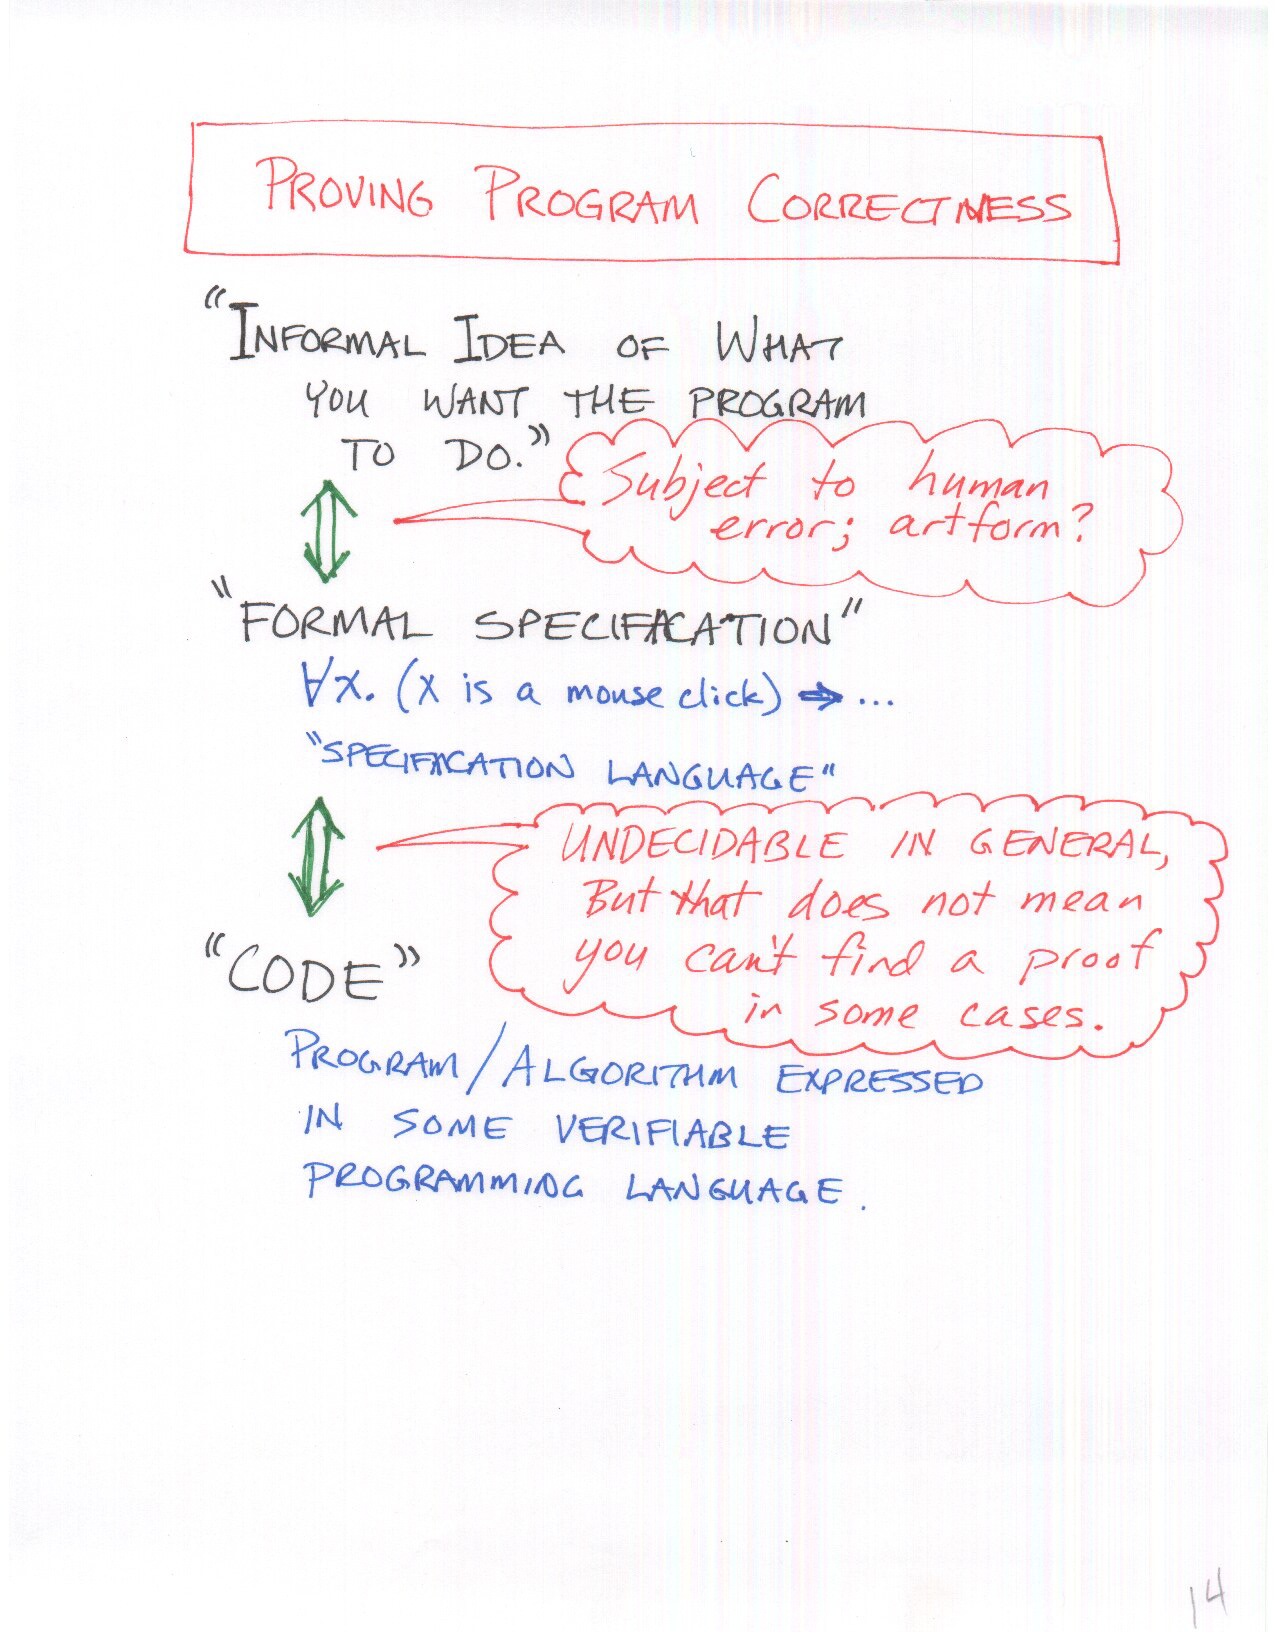 PROVING PROGRAM CORRECTNESS
"INFORMAL IDEA OF WHAT
YOU WANT THE PROGRAM
TO DO."
Subject to human
error; artform?
"FORMAL SPECIFICATION"
∀x. (x is a mouse click) ⇒ ...
"SPECIFICATION LANGUAGE"
UNDECIDABLE IN GENERAL,
But that does not mean
you can't find a proof
in some cases.
"CODE"
PROGRAM/ALGORITHM EXPRESSED
IN SOME VERIFIABLE
PROGRAMMING LANGUAGE.
14